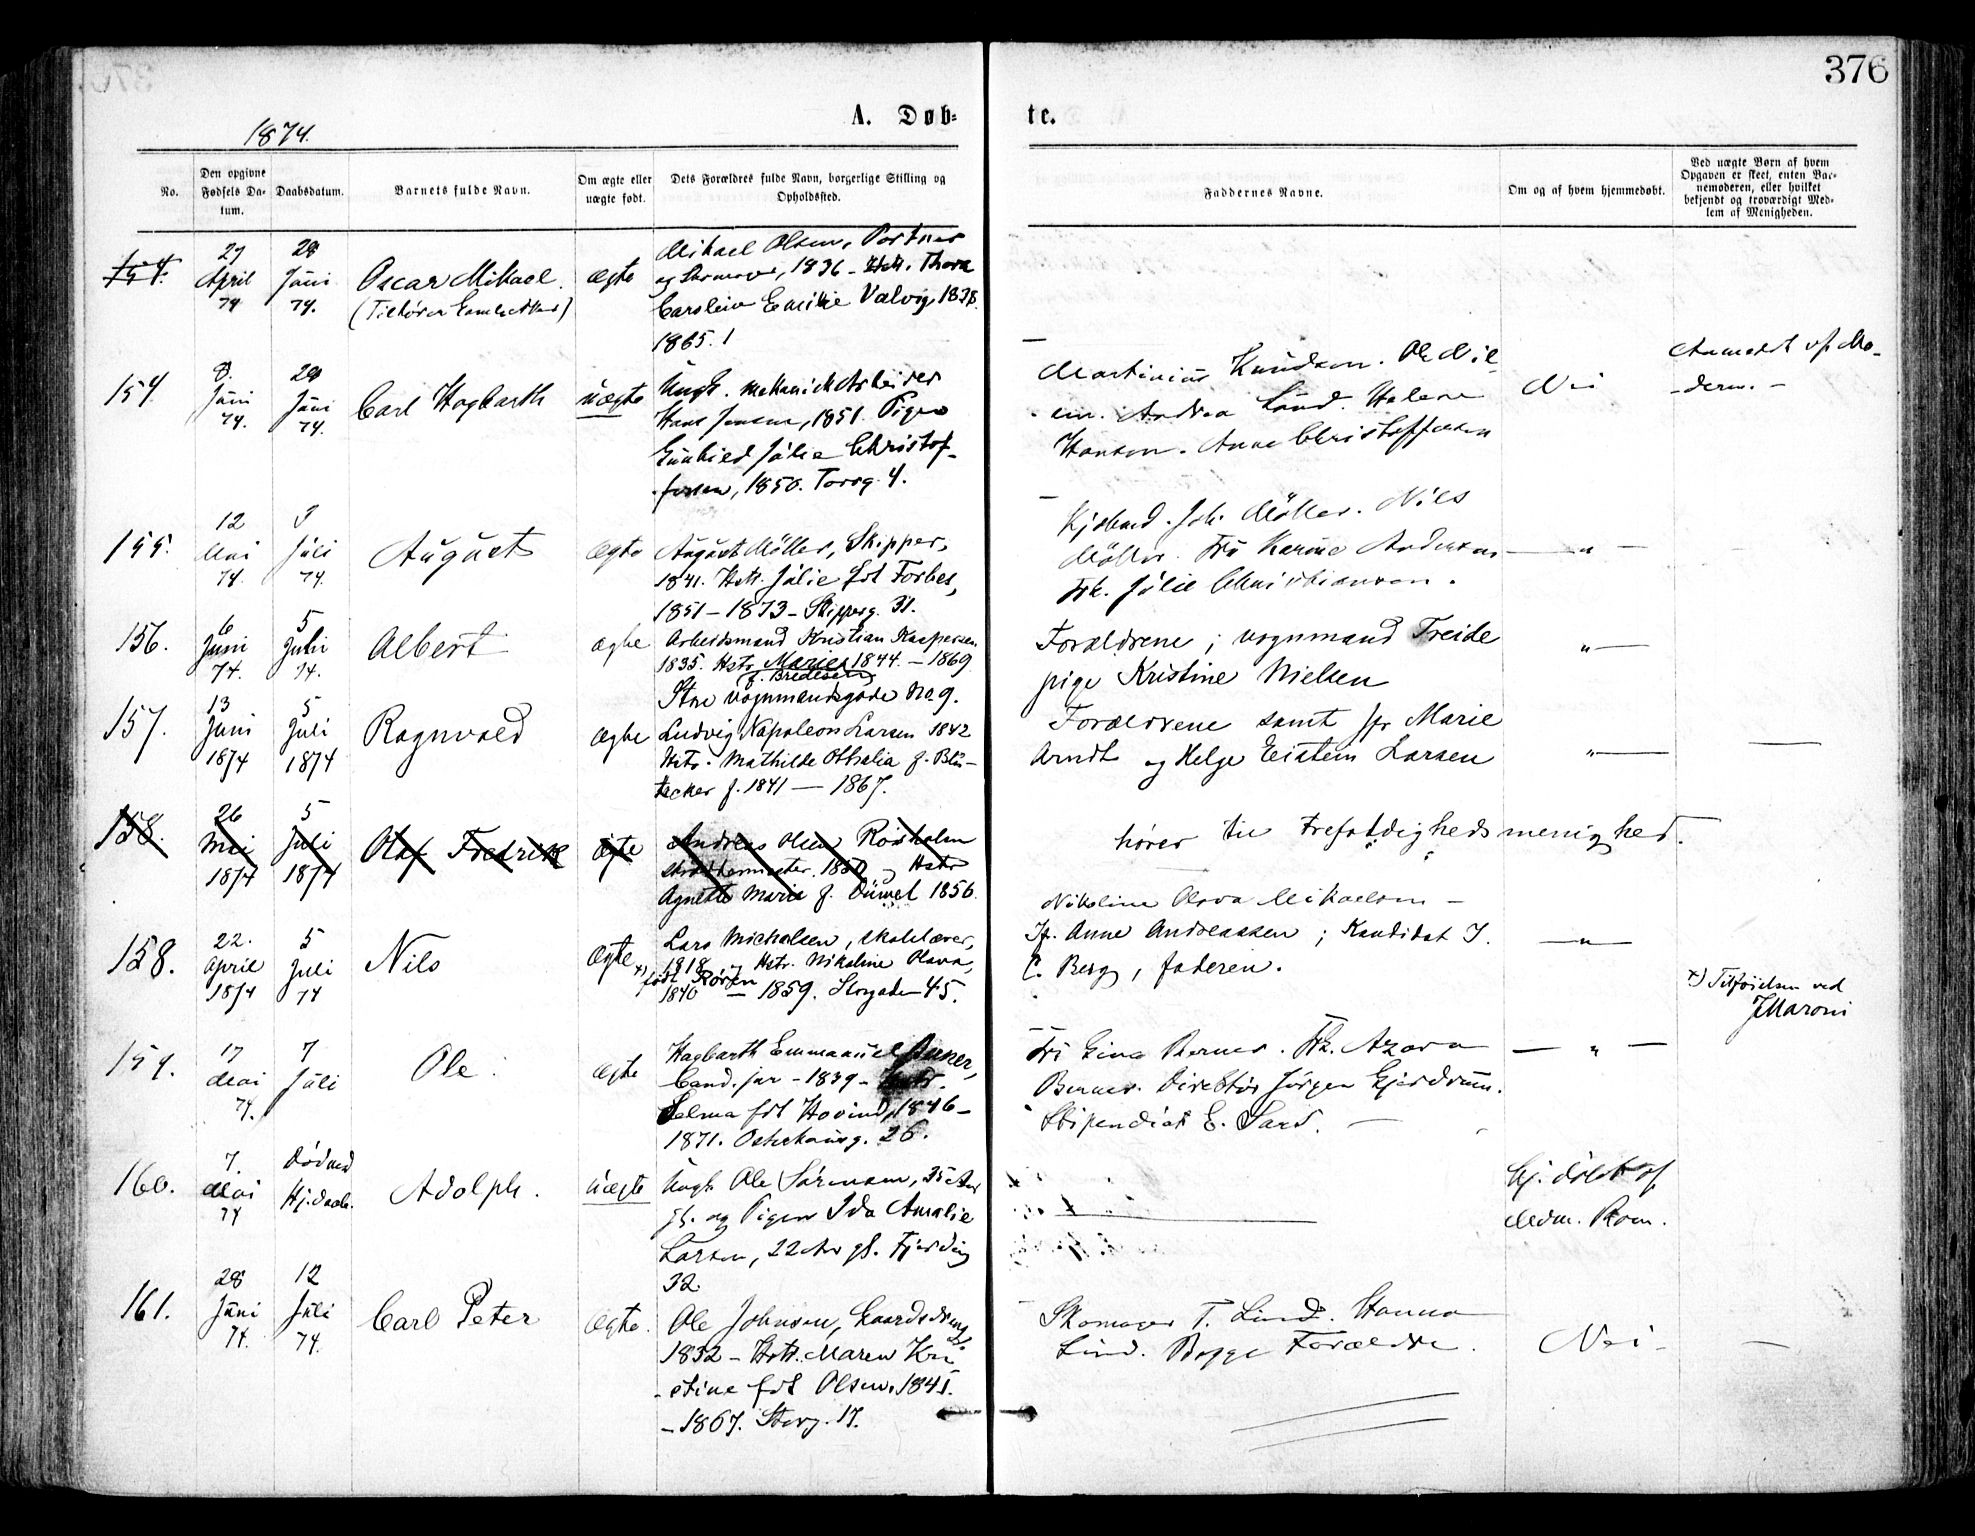 376
A. Døb-
te.
1874.
No.
Den opgivne Fødsels Da-tum.
Daabsdatum.
Barnets fulde Navn.
Om ægte eller uægte født.
Dets Forældres fulde Navn, borgerlige Stilling og Opholdssted.
Faddernes Navne.
Om og af hvem hjemmedøbt.
Ved uægte Børn af hvem Opgaven er skeet, enten Bar-nemoderen, eller hvilket bekjendt og troværdigt Med-lem af Menigheden.
154.
27 April 74
28 Juni 74.
Oscar Mikael.
(Tilhører
ægte
Mikael Olsen, Portner
og Skomager, 1836 - Hstr. Thora
Emilie Valvig, 1838.
1865.
154.
8. Juni 74.
28 Juni 74.
Carl Hagbarth
uægte
Ungk. mekanisk Arbeider
Hans Jensen, 1851. Pigen
Gunhild Julie Christof-
fersen, 1850. Torvg. 4.
Martinius Knudsen. Ole Niel-
sen. Andrea Lund. Helene
Hansen. Anne Christoffersen
Nei
Anmeldt af Mo-
deren. -
155.
12 Mai 74.
3 Juli 74.
August
ægte
August Möller, Skipper,
1841. Hstr. Julie fdt Forbes,
1851 - 1873 - Skipperg. 31.
Kjøbmd. Joh. Möller. Nils
Möller. Fru Karine Andersen
Frk. Julie Christiansen.
„
156.
6 Juni 74.
5 Juli 74.
Albert
ægte
Arbeidsmand Kristian Kaspersen
1835. Hstr. Marie 1844. - 1869
f. Bredesen
Store vognmandsgade No 9.
Forældrene; vognmand Treide
pige Kristine Nielsen
„
157.
13 Juni 1874
5 Juli 1874
Ragnvald
ægte
Ludvig Napoleon Larsen 1842
Hstr. Mathilde Othalia f. Blü-
cker f. 1841 - 1867.
Forældrene samt jfr Marie
Arndt og Helge Eistein Larsen
„
158.
26 Mai 1874
5 Juli 1874
Olaf Fredrik
ægte
Andreas Olsen Rosholm
1850 og Hstr
Agnette Marie f. Düwel 1856.
hører til Trefoldighedsmenighed.
158.
22. April 1874
5 Juli 74
Nils
ægte
Lars Michalsen, skolelærer,
1818 Hstr. Nikoline Olava,
x) født Røren
1840 - 1859. Storgaden 45.
Nikoline Olava Mikaelsen -
Jfr. Anne Andreassen; Kandidat J.
C. Berg, faderen.
„
x) Tilføielsen ved
JMaroni
159.
17 Mai 74.
7 Juli
Ole
ægte
Hagbarth Emmanuel Berner,
Cand. jur - 1839 - Hstr.
Selma fdt Hovind, 1846 -
1871. Osterhausg. 26.
Fru Gina Berner. Fk. Azora
Berner. Direktør Jørgen Gjerdrum.
Stipendiat E. Sars.
„
160.
7. Mai 74
Død ved Hj.daab.
Adolph.
uægte
Ungk. Ole Sörensen, 35 Aar
gl. og Pigen Ida Amalie
Larsen, 22 Aar gl. Fjerding
32.
Hj. døbt af
Mdm. Rom.
161.
28 Juni 74.
12 Juli 74.
Carl Peter
ægte.
Ole Johnsen, Gaardsdreng,
1832 - Hstr. Maren Kri-
stine fdt Olsen, 1841.
- 1867. Storg. 17.
Skomager T. Lind. Hanna
Lind. Begge Forældre.
Nei